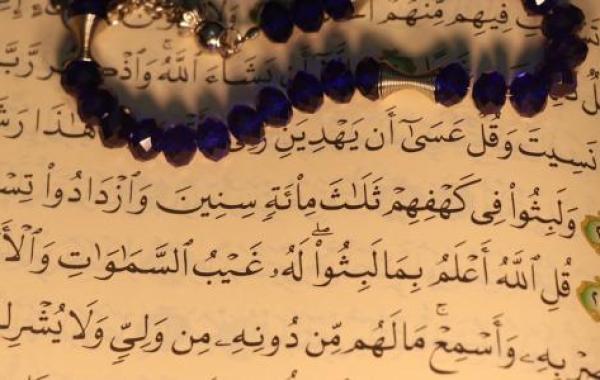 فِيهِم مِّنْهُمْ
أَن يَشَآءَ ٱللَّهُ وَٱذْكُر رَّبَّ
نَسِيتَ وَقُلْ عَسَىٰٓ أَن يَهْدِيَنِ هَٰذَا
وَلَبِثُوا۟ فِى كَهْفِهِمْ ثَلَٰثَ مِا۟ئَةٍ سِنِينَ وَٱزْدَادُوا۟ تِسْ
قُلِ ٱللَّهُ أَعْلَمُ بِمَا لَبِثُوا۟ ۖ لَهُۥ غَيْبُ ٱلسَّمَٰوَٰتِ وَٱلْأَ
بِهِۦ وَأَسْمِعْ ۚ مَا لَهُم مِّن دُونِهِۦ مِن وَلِىٍّ وَلَا يُشْرِ